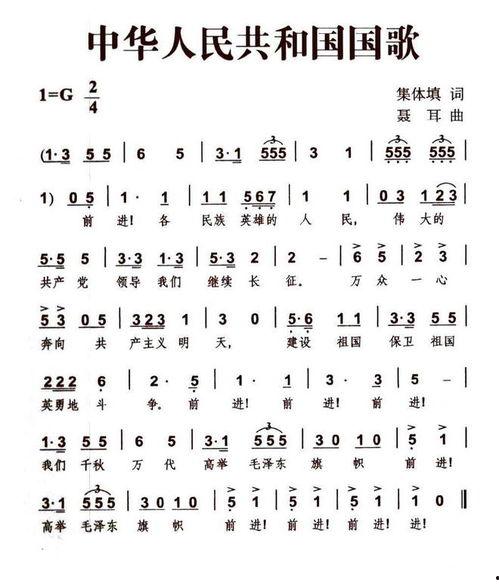 中华人民共和国国歌
1=G 2/4
集体填 词
聂 耳 曲
(1·3 5 5 | 6 5 | 3·1 555 | 3 1 | 555 555 |
1) 0 5 | 1· 1 | 1 1 5 6 7 | 1 1 | 0 3 1 2 3 |
前 进! 各 民族 英雄的 人 民, 伟 大的
5·5 5 | 3·3 1·3 | 5·3 2 | 2 – | 6 5 | 2 3 |
共产 党 领导 我们 继续 长 征。 万 众 一 心
5 3 0 5 | 3 2 3 1 | 3 0 | 5·6 1 1 | 3·3 5 5 |
奔向 共 产主义 明 天, 建设 祖国 保卫 祖国
2 2 2 6 | 2· 5 | 1· 1 | 3· 3 | 5 – |
英勇地 斗 争。 前 进! 前 进! 前 进!
1·3 5 5 | 6 5 | 3·1 555 | 3 0 1 0 | 5 1 |
我们 千秋 万 代 高举 毛泽东 旗 帜 前 进!
3·1 555 | 3 0 1 0 | 5 1 | 5 1 | 5 1 | 1 0 ‖
高举 毛泽东 旗 帜 前 进! 前 进! 前 进!